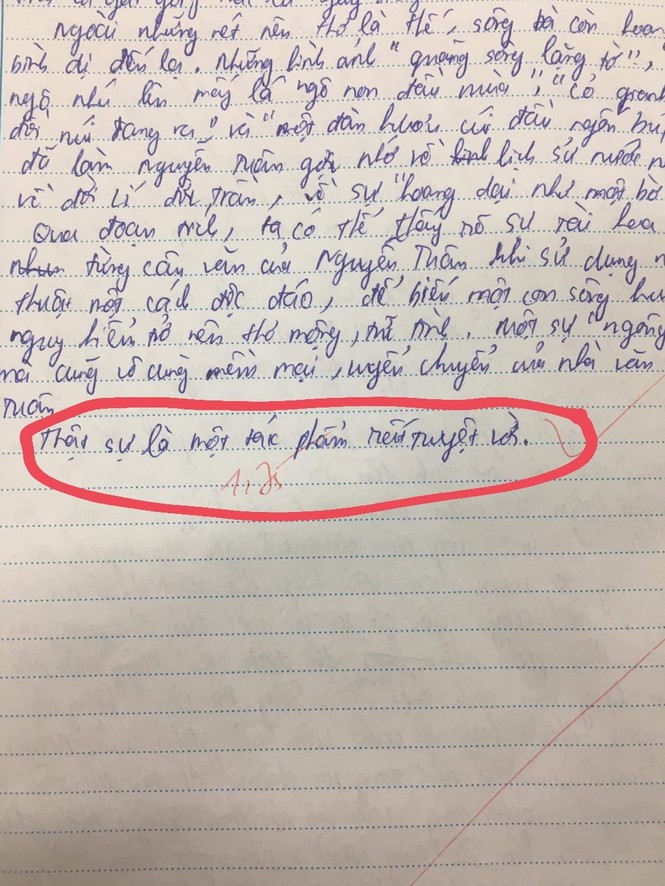 Ngoài những nét nên thơ là thế, sông Đà còn hoan
bình dị đến lạ. Những hình ảnh "quãng sông lặng tờ",
ngô nhú lên mấy lá ngô non đầu mùa", "cỏ gianh
đồi núi đang ra", và "một đàn hươu cúi đầu ngốn búp
đã làm Nguyễn Tuân gợi nhớ về lịch sử nước n
về đời Lí đời Trần, về sự "hoang dại như một bờ
Qua đoạn trích, ta có thể thấy rõ sự tài hoa
từng câu văn của Nguyễn Tuân khi sử dụng n
thuật một cách độc đáo, để biến một con sông hu
nguy hiểm trở nên thơ mộng, trữ tình. Một sự "ngông
mà cũng vô cùng mềm mại, uyển chuyển của nhà văn
Tuân
Thật sự là một tác phẩm rất tuyệt vời.
1,75